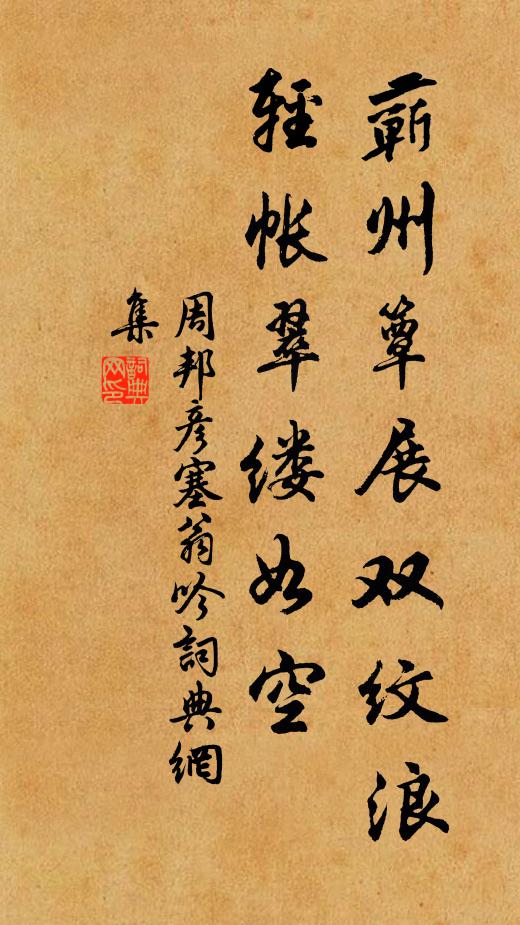 蕲州簟展双纹浪
輕帐翠缕如空
周邦彦塞翁吟詞典網
集
詞典网印